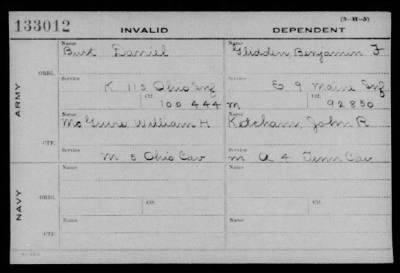 133012 INVALID DEPENDENT (3-H-5)
Name Name
Burt Daniel Glidden, Benjamin F
ORIG.
Service Service
K 115 Ohio Inf E 9 Maine Inf
Ctf. Ctf.
100444 m 92850
ARMY
Name Name
McGuire William H Ketcham, John R
CTF.
Service Service
M 5 Ohio Cav m A 4 Tenn Cav
Name Name
ORIG.
Service Service
Ctf. Ctf.
NAVY
Name Name
CTF.
Service Service